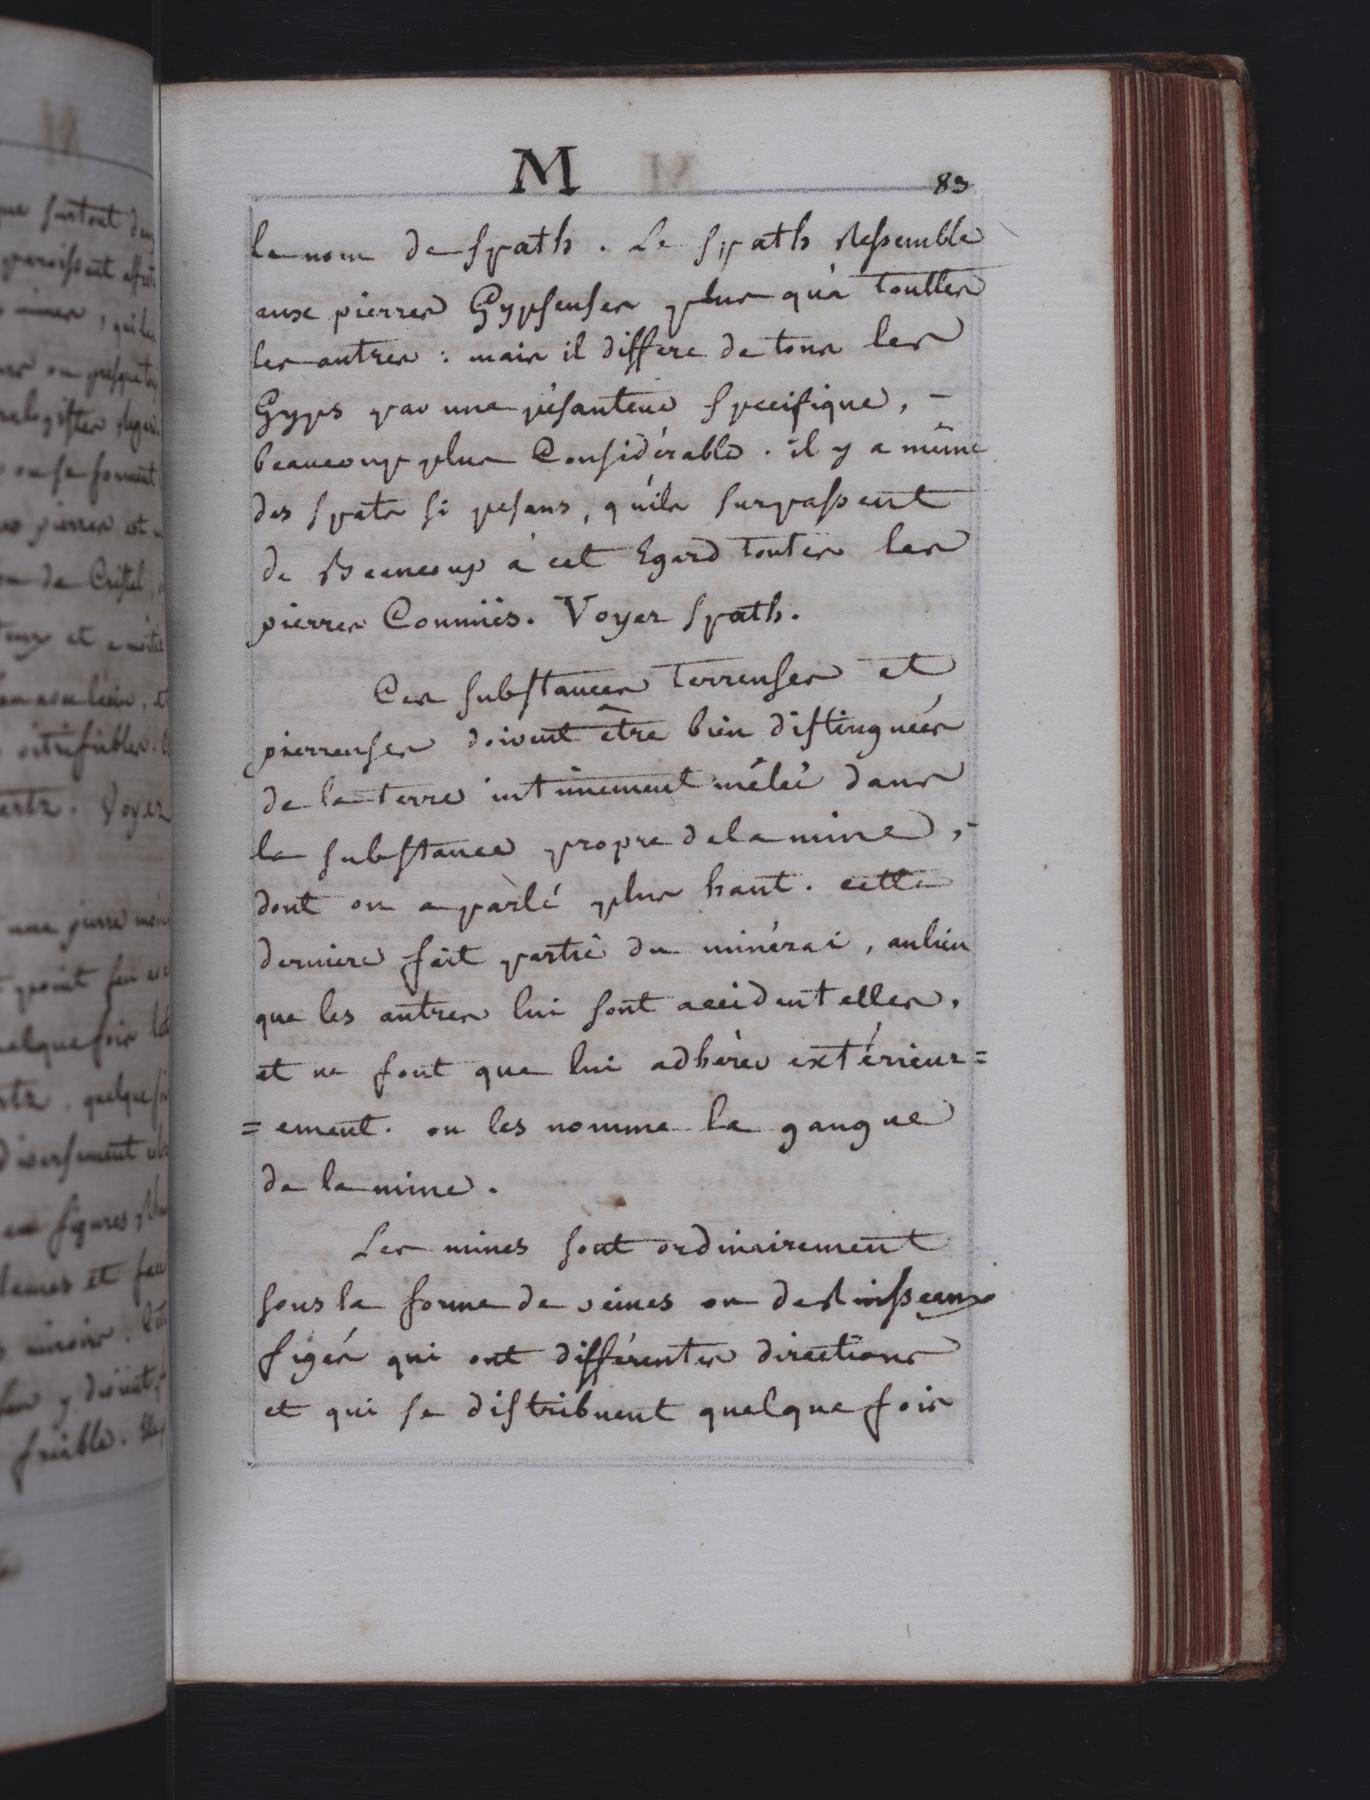 M
83
le nom de spath. Le spath Ressemble
aux pierres Gypseuses plus qu'à toutes
les autres : mais il differe de tous les
Gyps par une pésanteur specifique, -
beaucoup plus Considérable. il y a même
des spats si pesans, qu'ils surpassent
de Beaucoup à cet Egard toutes les
pierres Connuës. Voyez spath.
Ces substances terreuses et
pierreuses doivent être bien distinguées
de la terre intimement mêlée dans
la substance propre de la mine, -
dont on a parlé plus haut. cette
derniere fait partie du minérai, aulieu
que les autres lui sont accidentelles,
et ne font que lui adhérer extérieur=
=ement. on les nomme la gangue
de la mine.
Les mines sont ordinairement
sous la forme de veines ou de Ruisseaux
figés qui ont différentes directions
et qui se distribuent quelque fois